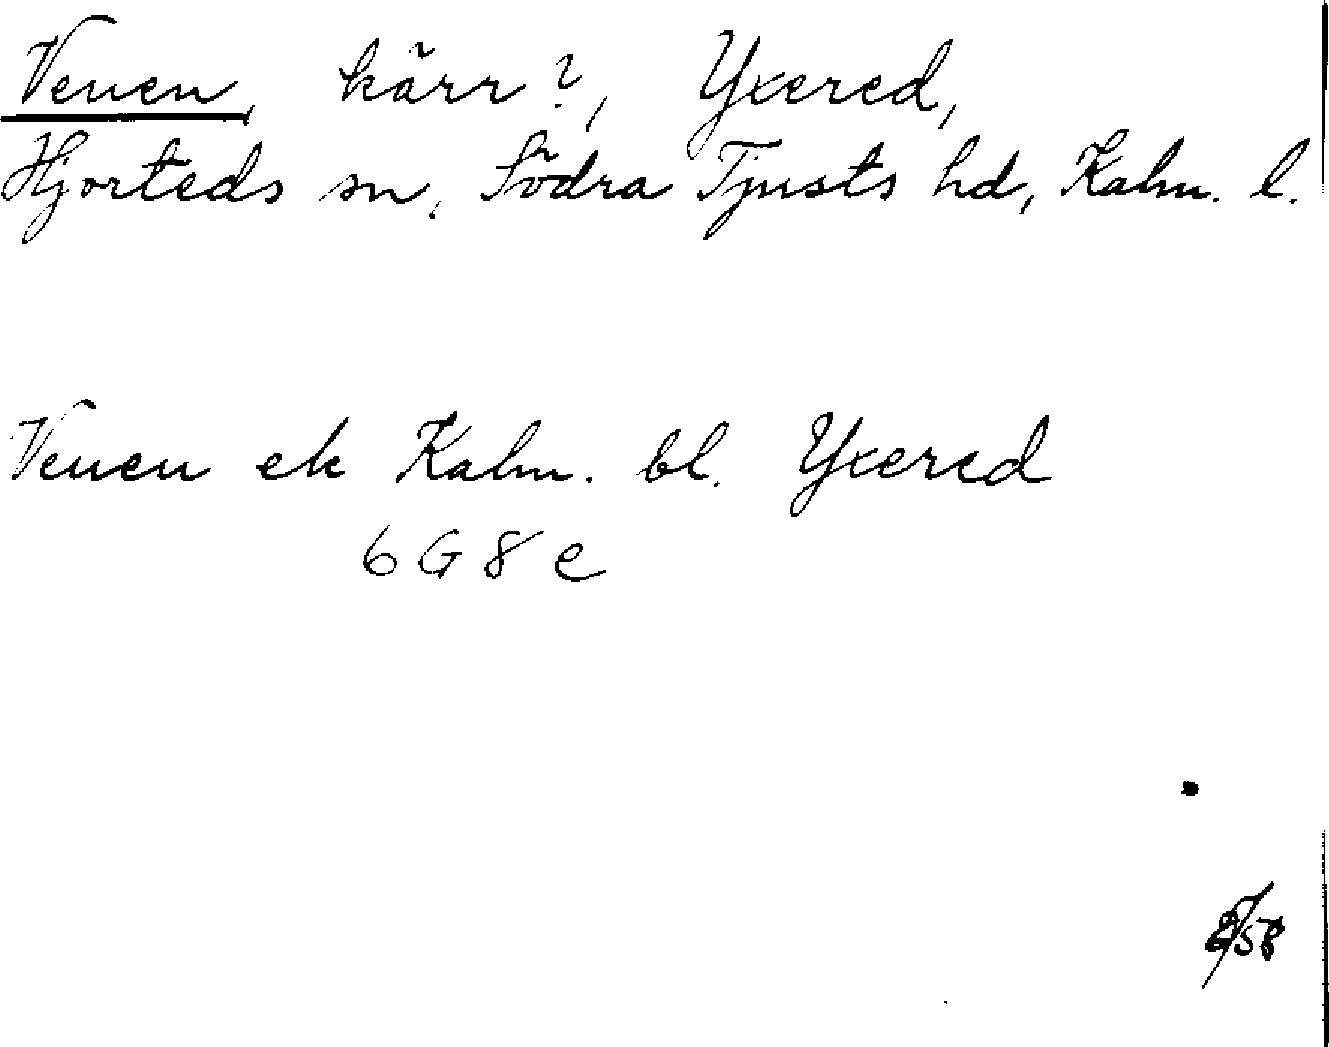 Venen, kärr?, Yxered,
Hjorteds sn, Södra Tjusts hd, Kalm. l.
Venen ek Kalm. bl. Yxered
6 G 8 e